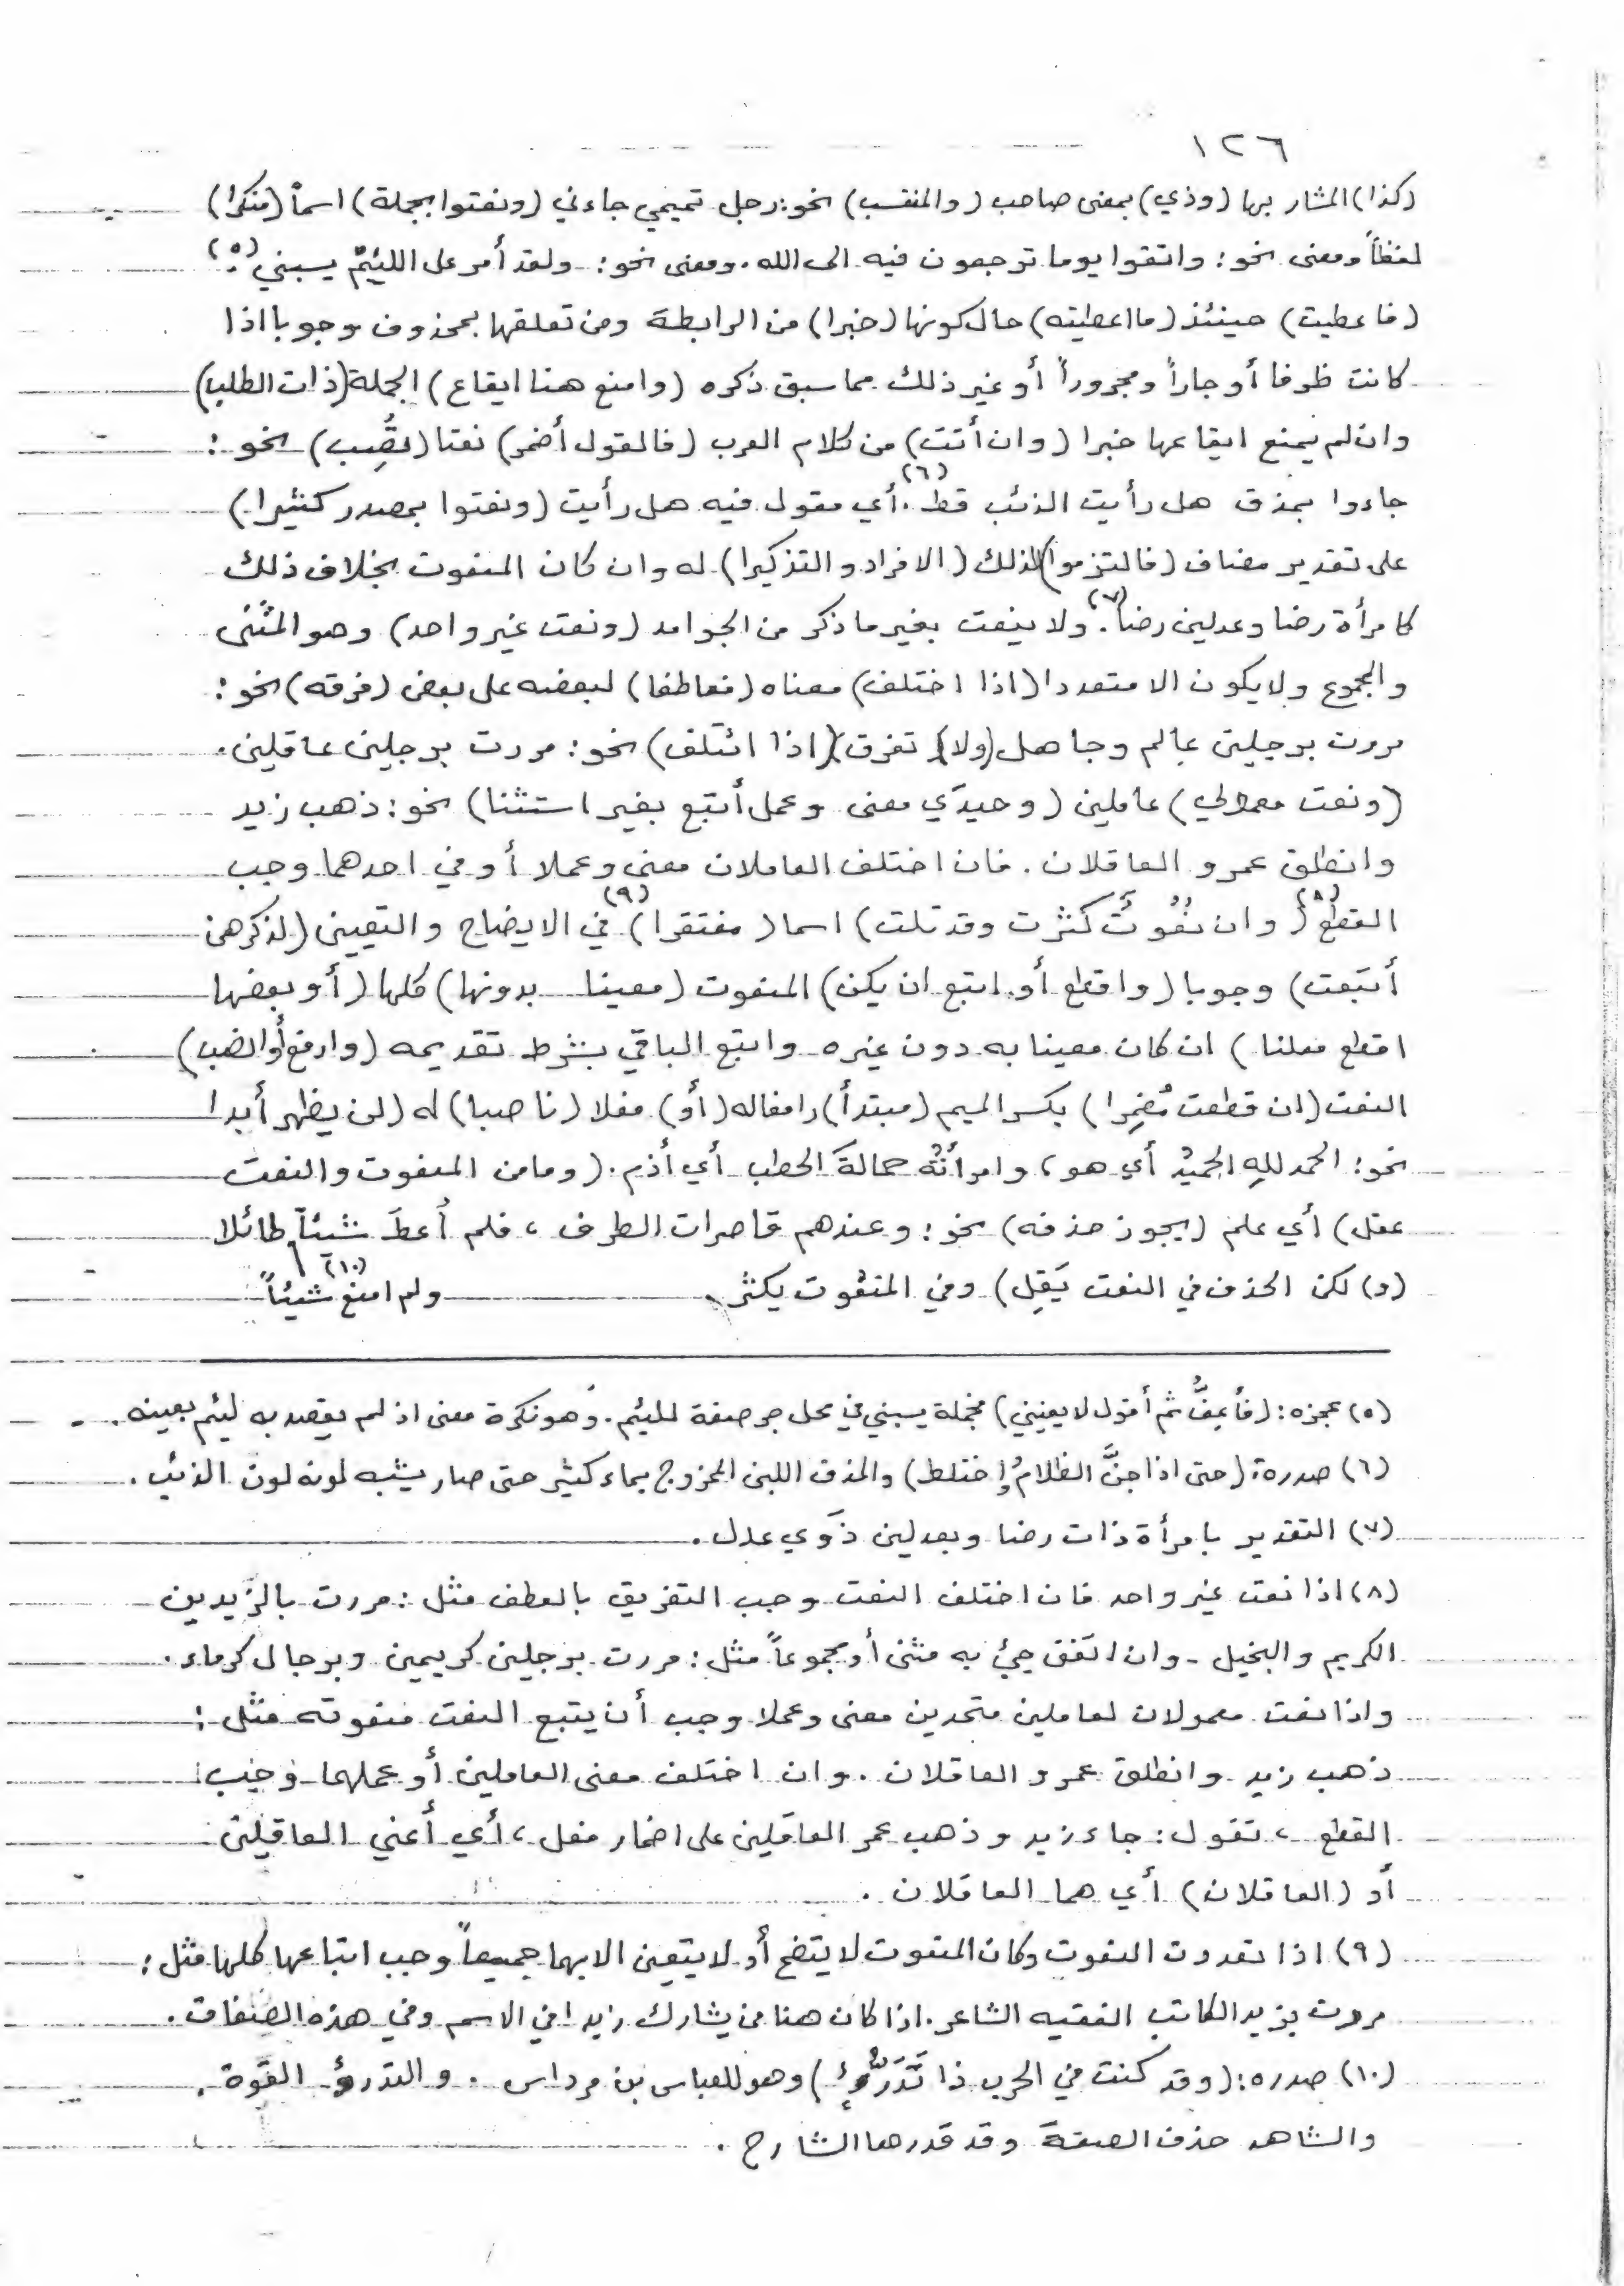 ١٢٦
(كذا) المشار بها (وذي) بمعنى صاحب (والمنتسب) نحو: رجل تميمي جاءني (ونعتوا بجملة) اسماً (منكرا)
لفظاً ومعنى نحو: واتقوا يوما ترجعون فيه الى الله. ومعنى نحو: ولقد أمر على اللئيم يسبني (٥)
(فاعطيت) حينئذ (ما اعطيته) حال كونها (خبرا) من الرابطة ومن تعلقها بمحذوف وجوبا اذا
كانت ظرفا أو جاراً ومجروراً أو غير ذلك مما سبق ذكره (وامنع هنا ايقاع) الجملة (ذات الطلب)
وان لم يمنع ايقاعها خبرا (وان أتت) من كلام العرب (فالقول أضمر) نعتا (تُصِب) نحو:
جاءوا بمذق هل رأيت الذئب قط (٦). أي مقول فيه هل رأيت (ونعتوا بمصدر كثيرا)
على تقدير مضاف (فالتزموا) لذلك (الافراد والتذكيرا) له وان كان المنعوت بخلاف ذلك
كامرأة رضا وعدلين رضا (٧). ولا ينعت بغير ما ذكر من الجوامد (ونعت غير واحد) وهو المثنى
والمجموع ولا يكون الا متعددا (اذا اختلف) معناه (فعاطفا) لبعضه على بعض (فرقه) نحو:
مررت برجلين عالم وجاهل (ولا) تفرق (اذا ائتلف) نحو: مررت برجلين عاقلين.
(ونعت معمولي) عاملين (وحيدَي معنى وعمل أتبع بغير استثنا) نحو: ذهب زيد
وانطلق عمرو العاقلان. فان اختلف العاملان معنى وعملا أو في احدهما وجب
القطع (٨) (وان نُعُوتٌ كَثُرت وقد تلت) اسما (مفتقرا) (٩) في الايضاح والتعيين (لذكرهن
أتبَعت) وجوبا (واقطع أو اتبع ان يكن) المنعوت (معينا بدونها) كلها (أو بعضها
اقطع معلنا) ان كان معينا به دون غيره واتبع الباقي بشرط تقديمه (وارفع أو انصب)
النعت (ان قطعت مُضمِرا) بكسر الميم (مبتدأ) رافعا له (أو) فعلا (ناصبا) له (لن يظهر أبدا
نحو: الحمد للهِ الحميدُ أي هو، وامرأتُه حمالةَ الحطب أي أذم. (وما من المنعوت والنعت
عقل) أي علم (يجوز حذفه) نحو: وعندهم قاصرات الطرف، فلم أُعطَ شيئاً طائلا
(و) لكن الحذف في النعت يَقِل) وفي المنعُوت يكثر. ولم امنع شيئاً (١٠)
(٥) عجزه: (فأعِفُّ ثم أقول لا يعنيني) فجملة يسبني في محل جر صفة للئيم. وهو نكرة معنى اذ لم يقصد به لئيم بعينه.
(٦) صدره: (حتى اذا جنَّ الظلامُ واختلط) والمذق اللبن الممزوج بماء كثير حتى صار يشبه لونه لون الذئب.
(٧) التقدير بامرأة ذات رضا وبعدلين ذَوَي عدل.
(٨) اذا نعت غير واحد فان اختلف النعت وجب التفريق بالعطف مثل: مررت بالزيدين
الكريم والبخيل. وان اتفق جيئ به مثنى أو مجموعاً مثل: مررت برجلين كريمين وبرجال كرماء.
واذا نعت معمولان لعاملين متحدين معنى وعملا وجب أن يتبع النعت منعوته مثل:
ذهب زيد وانطلق عمرو العاقلان. وان اختلف معنى العاملين أو عملهما وجب
القطع، تقول: جاء زيد وذهب عمر العاقلين على اضمار فعل، أي أعني العاقلين
أو (العاقلان) أي هما العاقلان.
(٩) اذا تعددت النعوت وكان المنعوت لا يتضح أو لا يتعين الا بها جميعاً وجب اتباعها كلها مثل:
مررت بزيد الكاتب الفقيه الشاعر. اذا كان هنا من يشارك زيدا في الاسم وفي هذه الصفات.
(١٠) صدره: (وقد كنت في الحرب ذا تَدَرُّؤٍ) وهو للعباس بن مرداس. والتدرؤ القوة.
والشاهد حذف الصفة وقد قدرها الشارح.